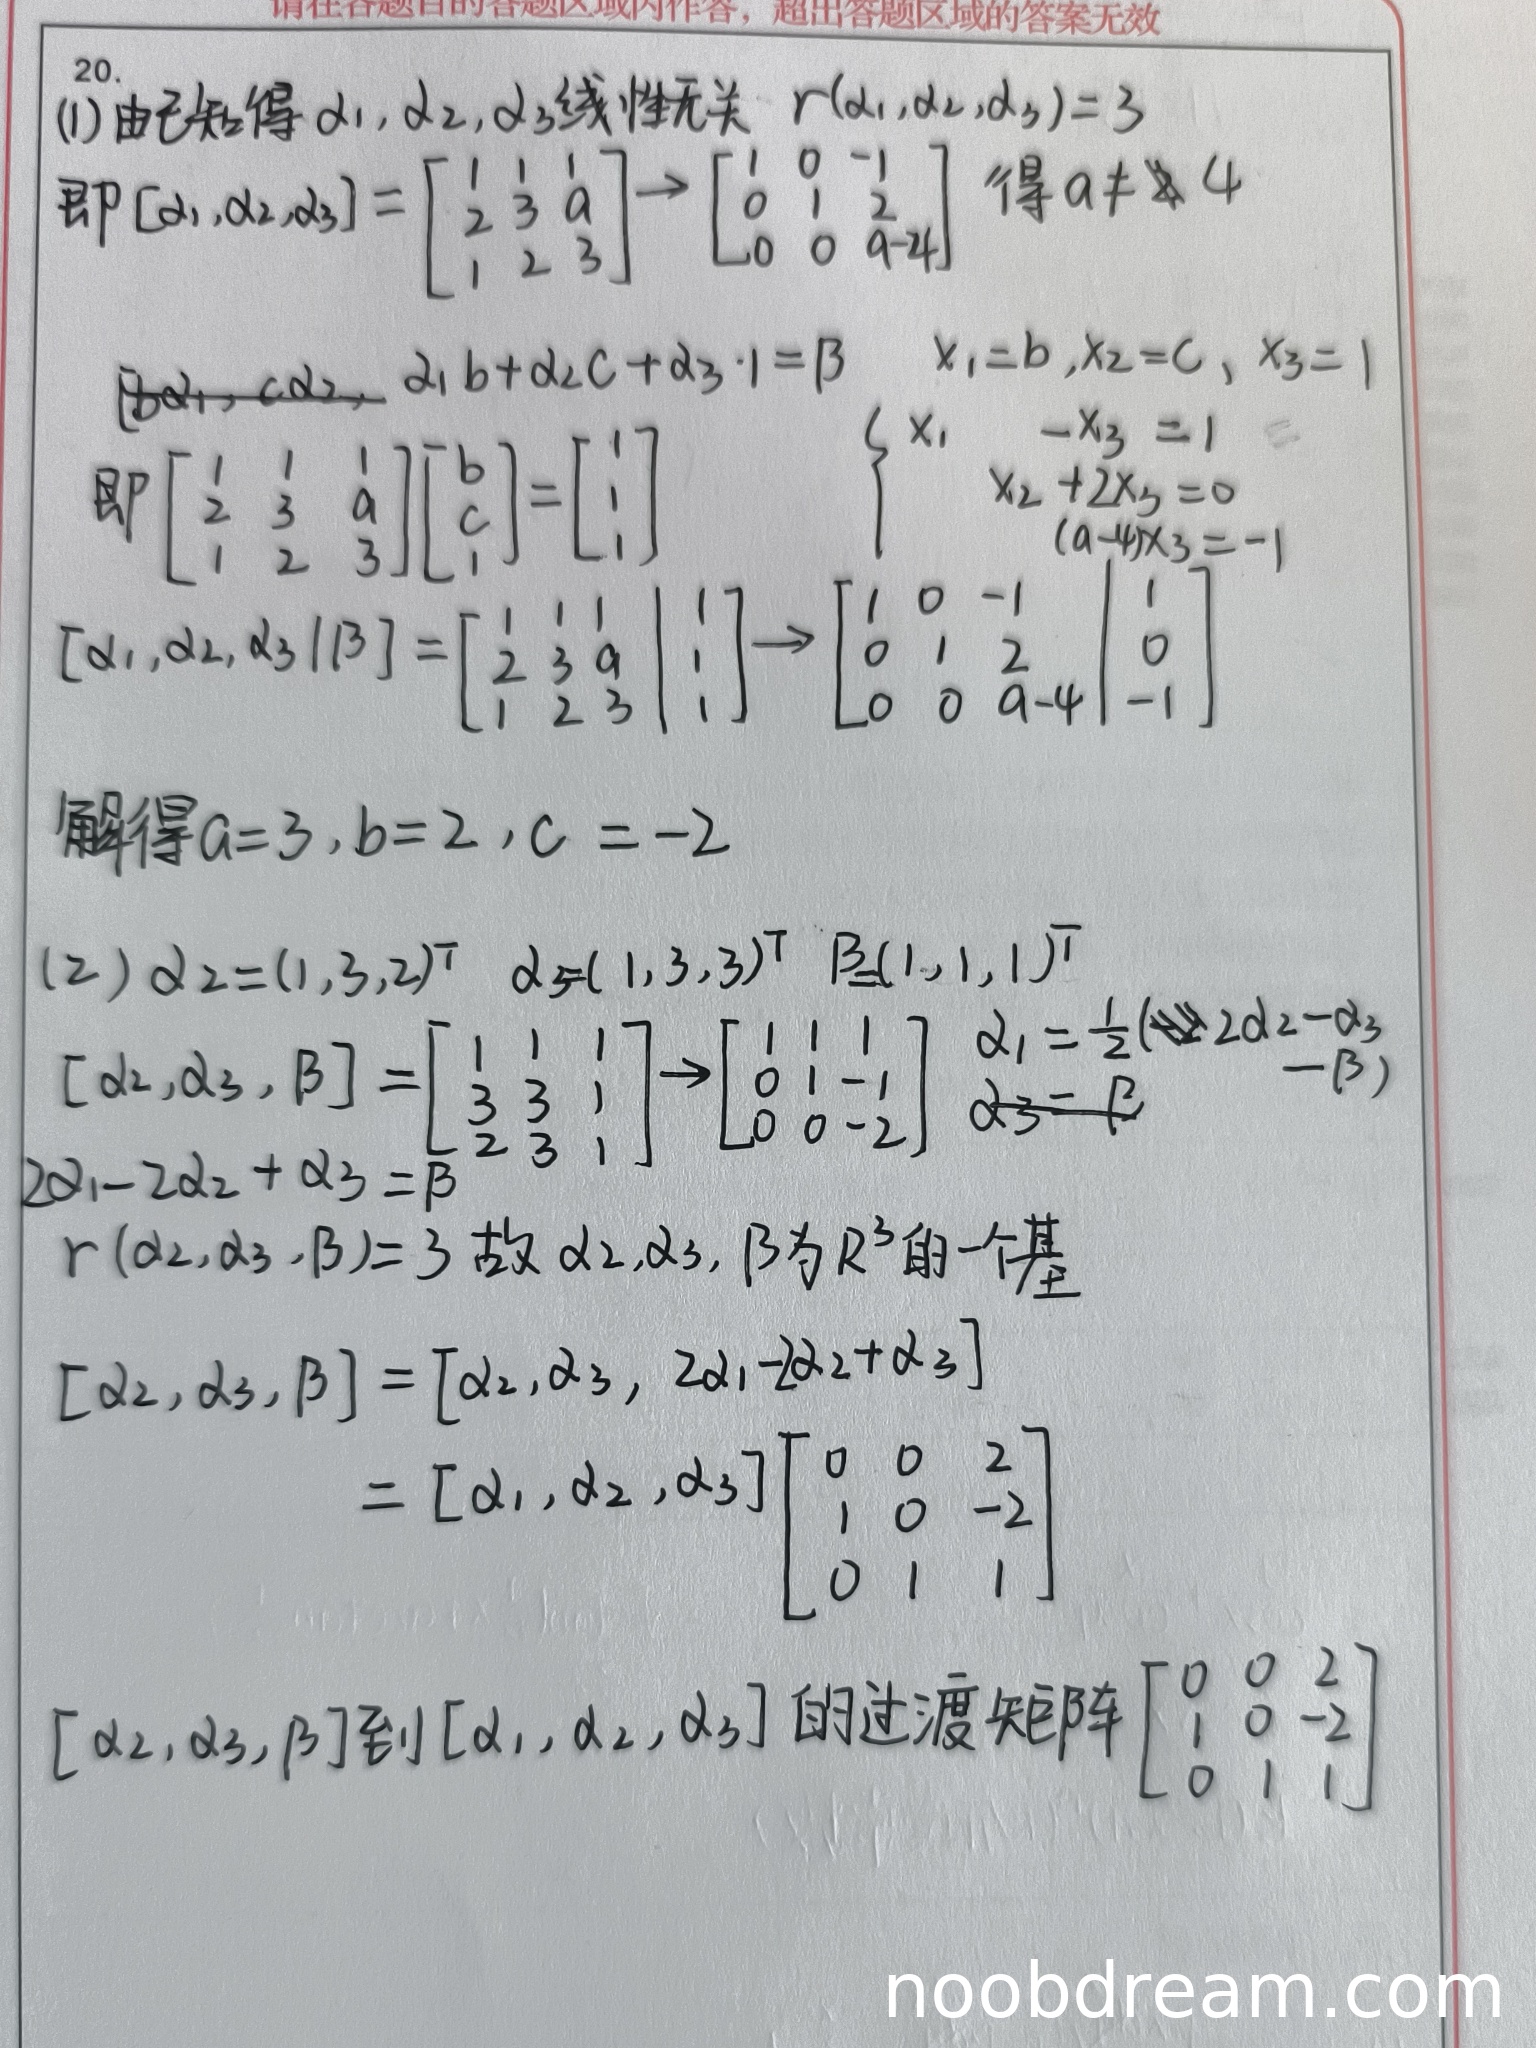 请在各题目的答题区域内作答，超出答题区域的答案无效
20.
(1) 由已知得 α1, α2, α3线性无关 r(α1,α2,α3)=3
即[α1,α2,α3] = [1 1 1; 2 3 a; 1 2 3] → [1 0 -1; 0 1 2; 0 0 a-4] 得 a≠ 4
[bα1, cα2, α1b+α2c+α3·1=β x1=b, x2=c, x3=1
即[1 1 1; 2 3 a; 1 2 3][b; c; 1] = [1; 1; 1] { x1 -x3 =1
x2 +2x3 =0
(a-4)x3 =-1
[α1,α2,α3|β] = [1 1 1 | 1; 2 3 a | 1; 1 2 3 | 1] → [1 0 -1 | 1; 0 1 2 | 0; 0 0 a-4 | -1]
解得a=3, b=2, c =-2
(2) α2=(1,3,2)ᵀ α3=(1,3,3)ᵀ β=(1,1,1)ᵀ
[α2,α3,β] = [1 1 1; 3 3 1; 2 3 1] → [1 1 1; 0 1 -1; 0 0 -2] α1=½(2α2-α3
-β)
α3=β
2α1-2α2+α3=β
r(α2,α3,β)=3 故 α2,α3,β为R³的一个基
[α2,α3,β] = [α2,α3, 2α1-2α2+α3]
= [α1,α2,α3][0 0 2; 1 0 -2; 0 1 1]
[α2,α3,β]到[α1,α2,α3]的过渡矩阵[0 0 2; 1 0 -2; 0 1 1]
noobdream.com